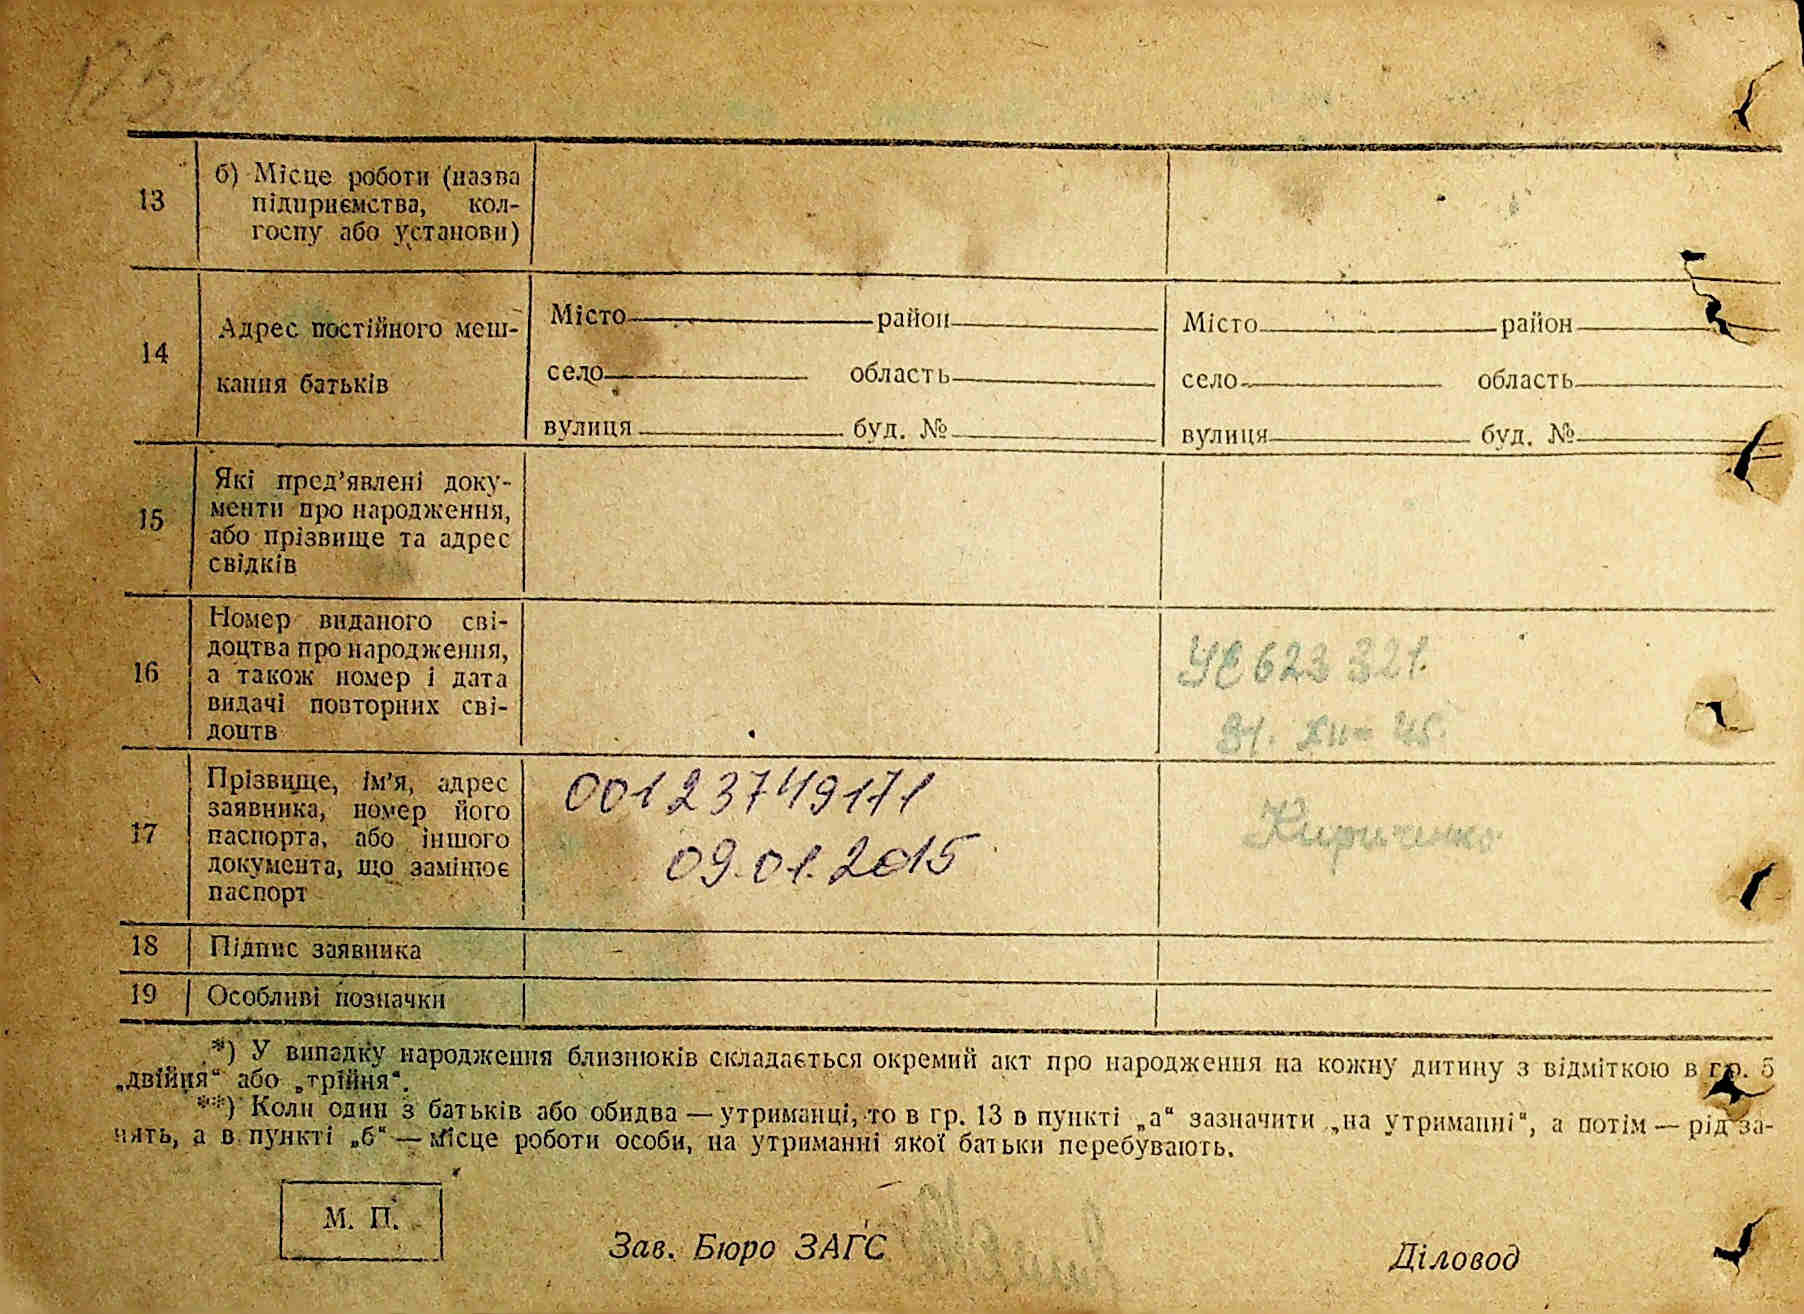 13
б) Місце роботи (назва
підприємства, кол-
госпу або установи)
14
Адрес постійного меш-
кання батьків
Місто район
село область
вулиця буд. №
Місто район
село область
вулиця буд. №
15
Які пред’явлені доку-
менти про народження,
або прізвище та адрес
свідків
16
Номер виданого сві-
доцтва про народження,
а також номер і дата
видачі повторних сві-
доцтв
УЕ 623 321.
31. XII- 45.
17
Прізвище, ім’я, адрес
заявника, номер його
паспорта, або іншого
документа, що замінює
паспорт
00123749171
09.01.2015
Кириченко
18
Підпис заявника
19
Особливі позначки
*) У випадку народження близнюків складається окремий акт про народження на кожну дитину з відміткою в гр. 5
„двійня“ або „трійня“.
**) Коли один з батьків або обидва — утриманці, то в гр. 13 в пункті „а“ зазначити „на утриманні“, а потім — рід за-
нять, а в пункті „б“ — місце роботи особи, на утриманні якої батьки перебувають.
М. П.
Зав. Бюро ЗАГС
Діловод